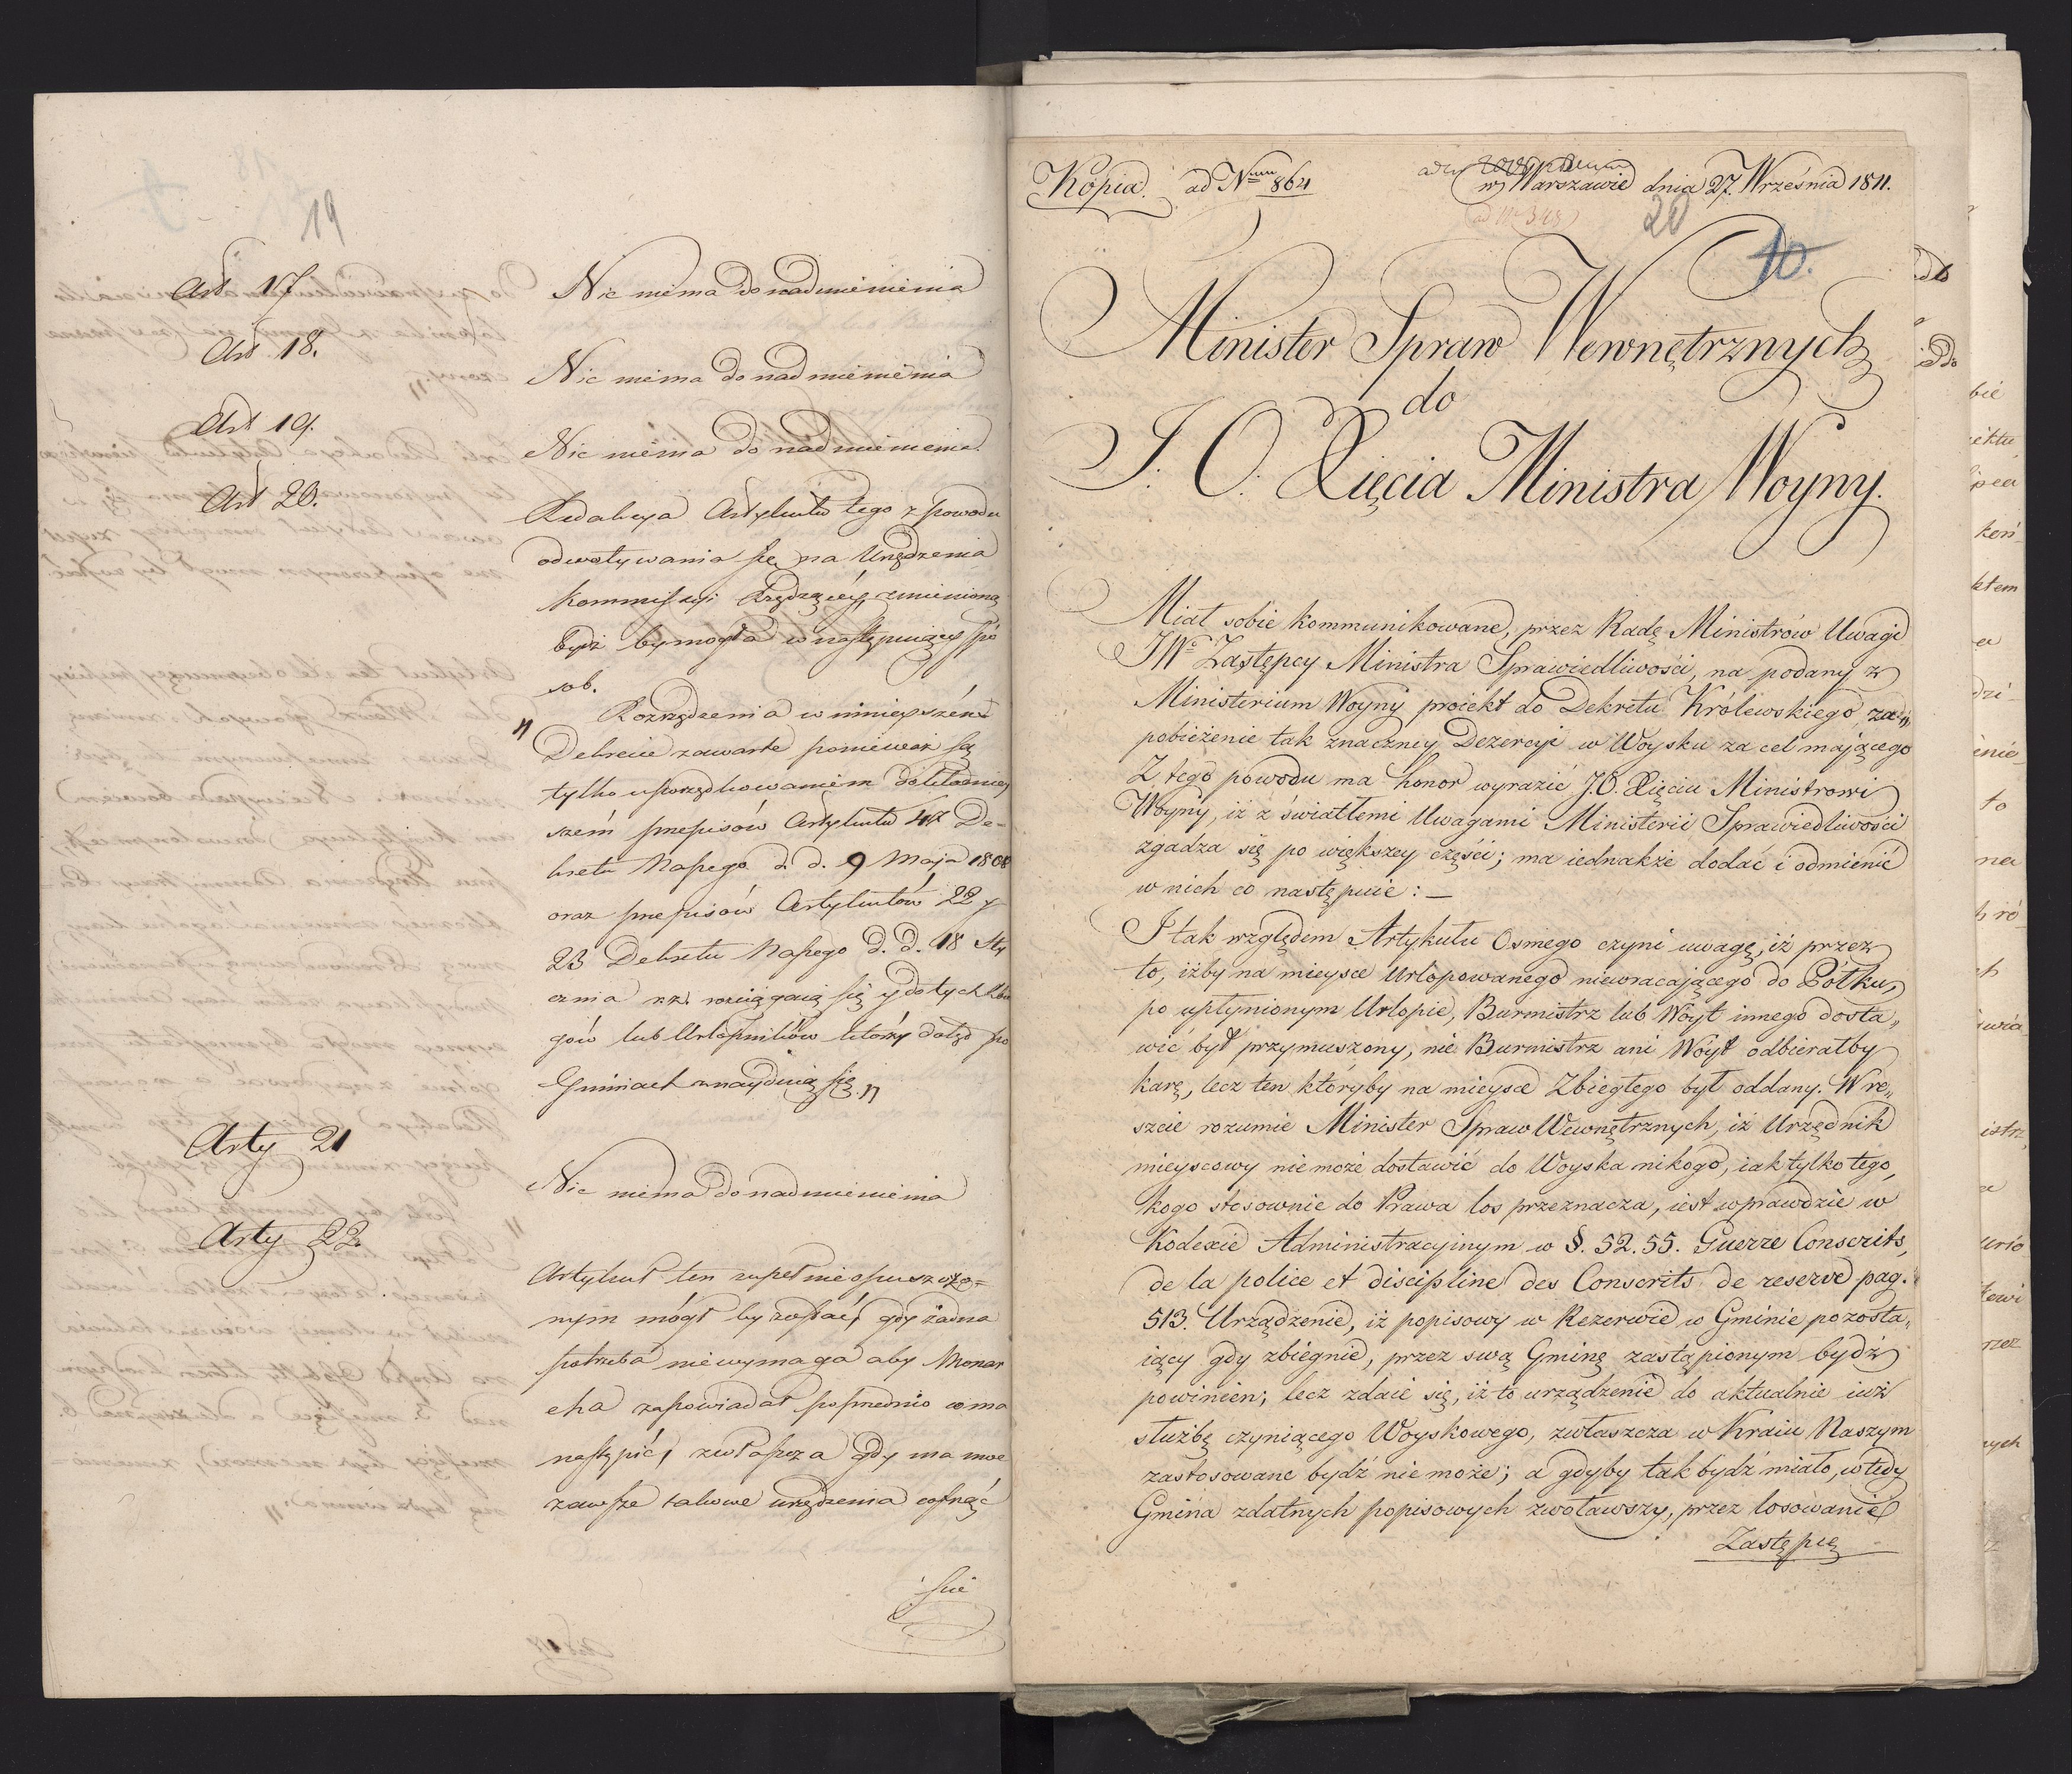 19
Art 17
Nic niema do nadmienienia
Art 18.
Nic niema do nadmienienia
Art 19.
Nic niema do nadmienienia
Art 20.
Redakcya Artykułu tego z powodu
odwoływania się na Urządzenia
Kommissyi Rządzącéy, zmienioną
bydź by mogła w następuiący spo
sob.
" Rozrządzenia w ninieyszém
Dekrecie zawarte ponieważ są
tylko uporządkowaniem dokładniey
szém przepisów Artykułu 47 De-
kretu Naszego d. d. 9 Maja 1808
oraz przepisów Artykułów 22 y
23 Dekretu Naszego D. D. 18 Sty
cznia r. z. rozciągaią się y do tych zbie
gów lub Urlopników którzy dotąd po
Gminach znayduią się "
Arty 21
Nic niema do nadmienienia
Arty 22.
Artykuł ten zupełnie opuszczo=
nym mógł by zostać, gdy żadna
potrzeba niewymaga aby Monar
cha zapowiadał poprzednio co ma
nastąpić, zwłaszcza gdy ma moc
zawsze takowe urządzenia cofnąć
Kopia. ad N 864
w Warszawie dnia 27. Września 1811.
20
10.
Minister Spraw Wewnętrznych
do
J. O. Xięcia Ministra Woyny.
Miał sobie kommunikowane, przez Radę Ministrów Uwagi
JWo Zastępcy Ministra Sprawiedliwości, na podany z
Ministerium Woyny proiekt do Dekretu Królewskiego za„
pobieżenie tak znaczney Dezercyi w Woysku za cel mającego
Z tego powodu ma honor wyrazić J.O. Xięciu Ministrowi
Woyny, iż z światłemi Uwagami Ministerii Sprawiedliwości
zgadza się po większey części; ma iednakże dodać i odmienić
w nich co następuie: —
I tak względem Artykułu Osmego czyni uwagę, iż przez
to, iżby na mieysce Urlopowanego niewracającego do Półku,
po upłynionym Urlopie, Burmistrz lub Wóyt innego dosta„
wić był przymuszony, nie Burmistrz ani Wóyt odbierałby
karę, lecz ten któryby na mieysce Zbiegłego był oddany. Wre„
szcie rozumie Minister Spraw Wewnętrznych, iż Urzędnik
mieyscowy nie może dostawić do Woyska nikogo, iak tylko tego,
kogo stosownie do Prawa los przeznacza, iest wprawdzie w
Kodexie Administracyinym w §. 52. 55. Guerre Conscrits,
de la police et discipline des Conscrits de reserve pag.
513. Urządzenie, iż popisowy w Rezerwie w Gminie pozosta„
iący gdy zbiegnie, przez swą Gminę zastąpionym bydź
powinien; lecz zdaie się, iż to urządzenie do aktualnie iuż
służbę czyniącego Woyskowego, zwłaszcza w Kraiu Naszym
zastosowane bydź nie może; a gdyby tak bydź miało, wtedy
Gmina zdatnych popisowych zwoławszy, przez losowanie
Zastępcę